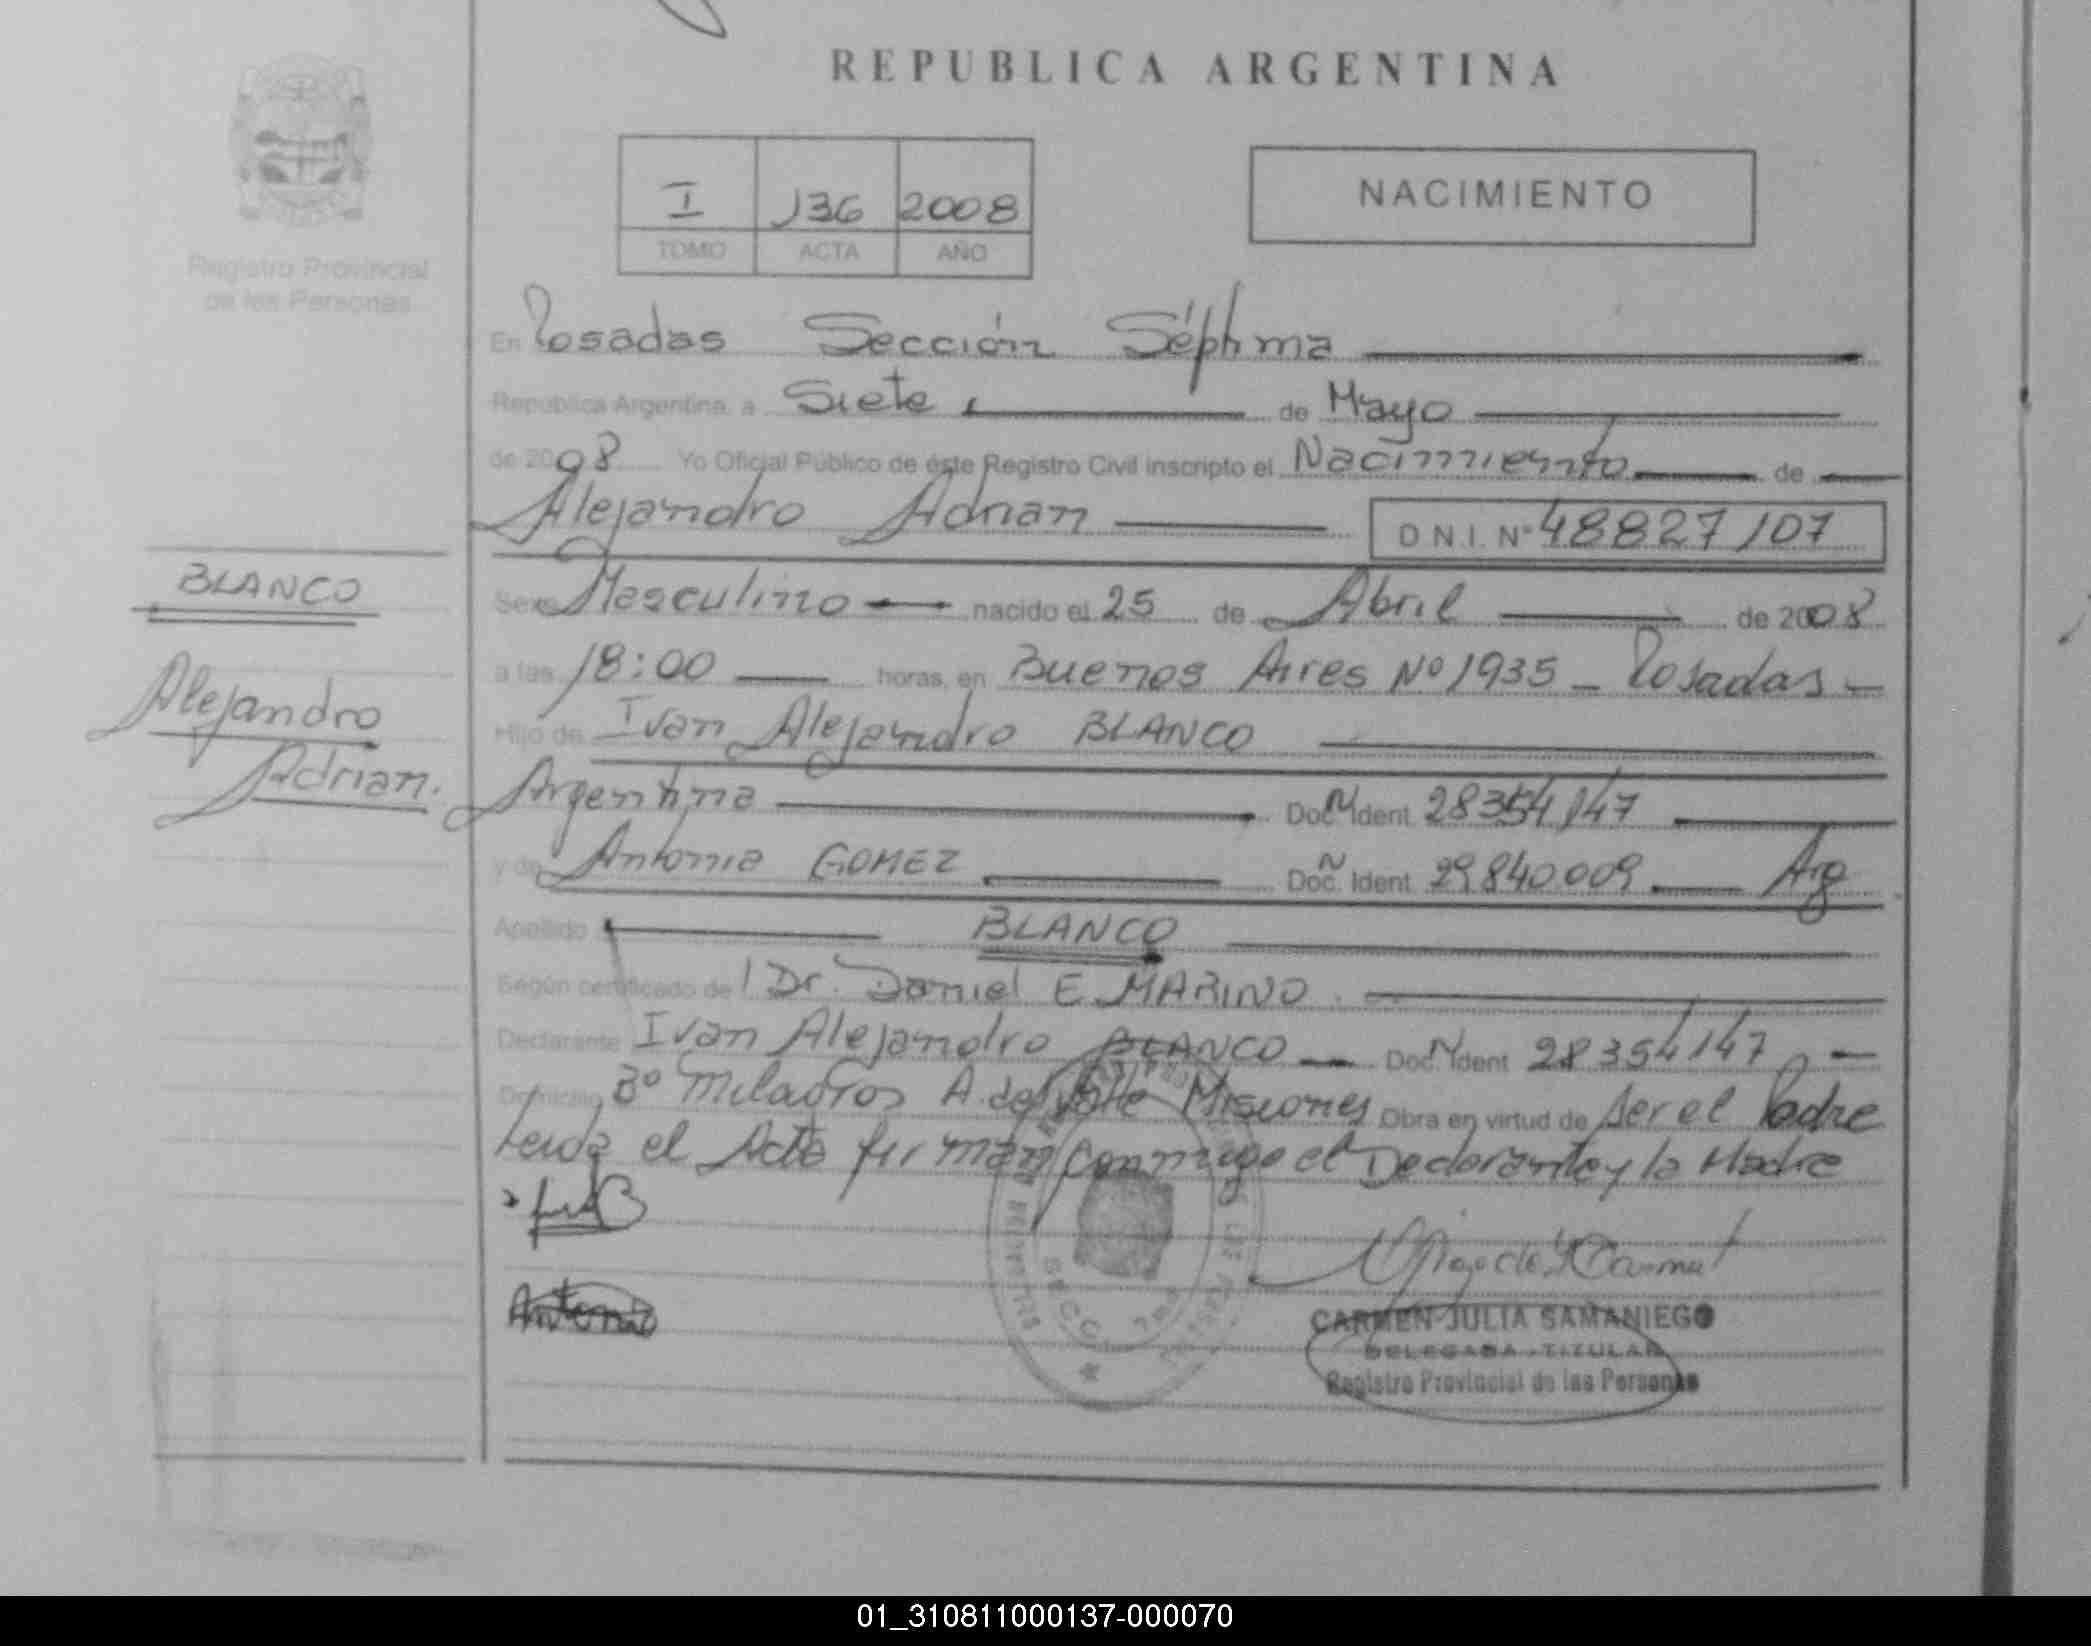 REPUBLICA ARGENTINA
I 136 2008
TOMO ACTA AÑO
NACIMIENTO
Registro Provincial
de las Personas
En Posadas Sección Séptima
Republica Argentina, a Siete de Mayo
de 2008 Yo Oficial Público de éste Registro Civil inscripto el Nacimiento de
Alejandro Adrian D.N.I. Nº 48827107
BLANCO
Alejandro
Adrian.
Sexo Masculino nacido el 25 de Abril de 2008
a las 18:00 horas, en Buenos Aires Nº 1935 - Posadas -
Hijo de Ivan Alejandro BLANCO
Argentina Doc. N Ident 28354147
y de Antonia GOMEZ Doc. N Ident 29840009 Arg
Apellido BLANCO
Según certificado de Dr. Daniel E. MARINO.
Declarante Ivan Alejandro BLANCO Doc. N Ident 28354147
Domicilio Bº Milagros A. del Valle Misiones Obra en virtud de ser el Padre
Leida el Acta firman conmigo el Declarante y la Madre
Antonia
CARMEN JULIA SAMANIEGO
DELEGADA TITULAR
Registro Provincial de las Personas
01_310811000137-000070